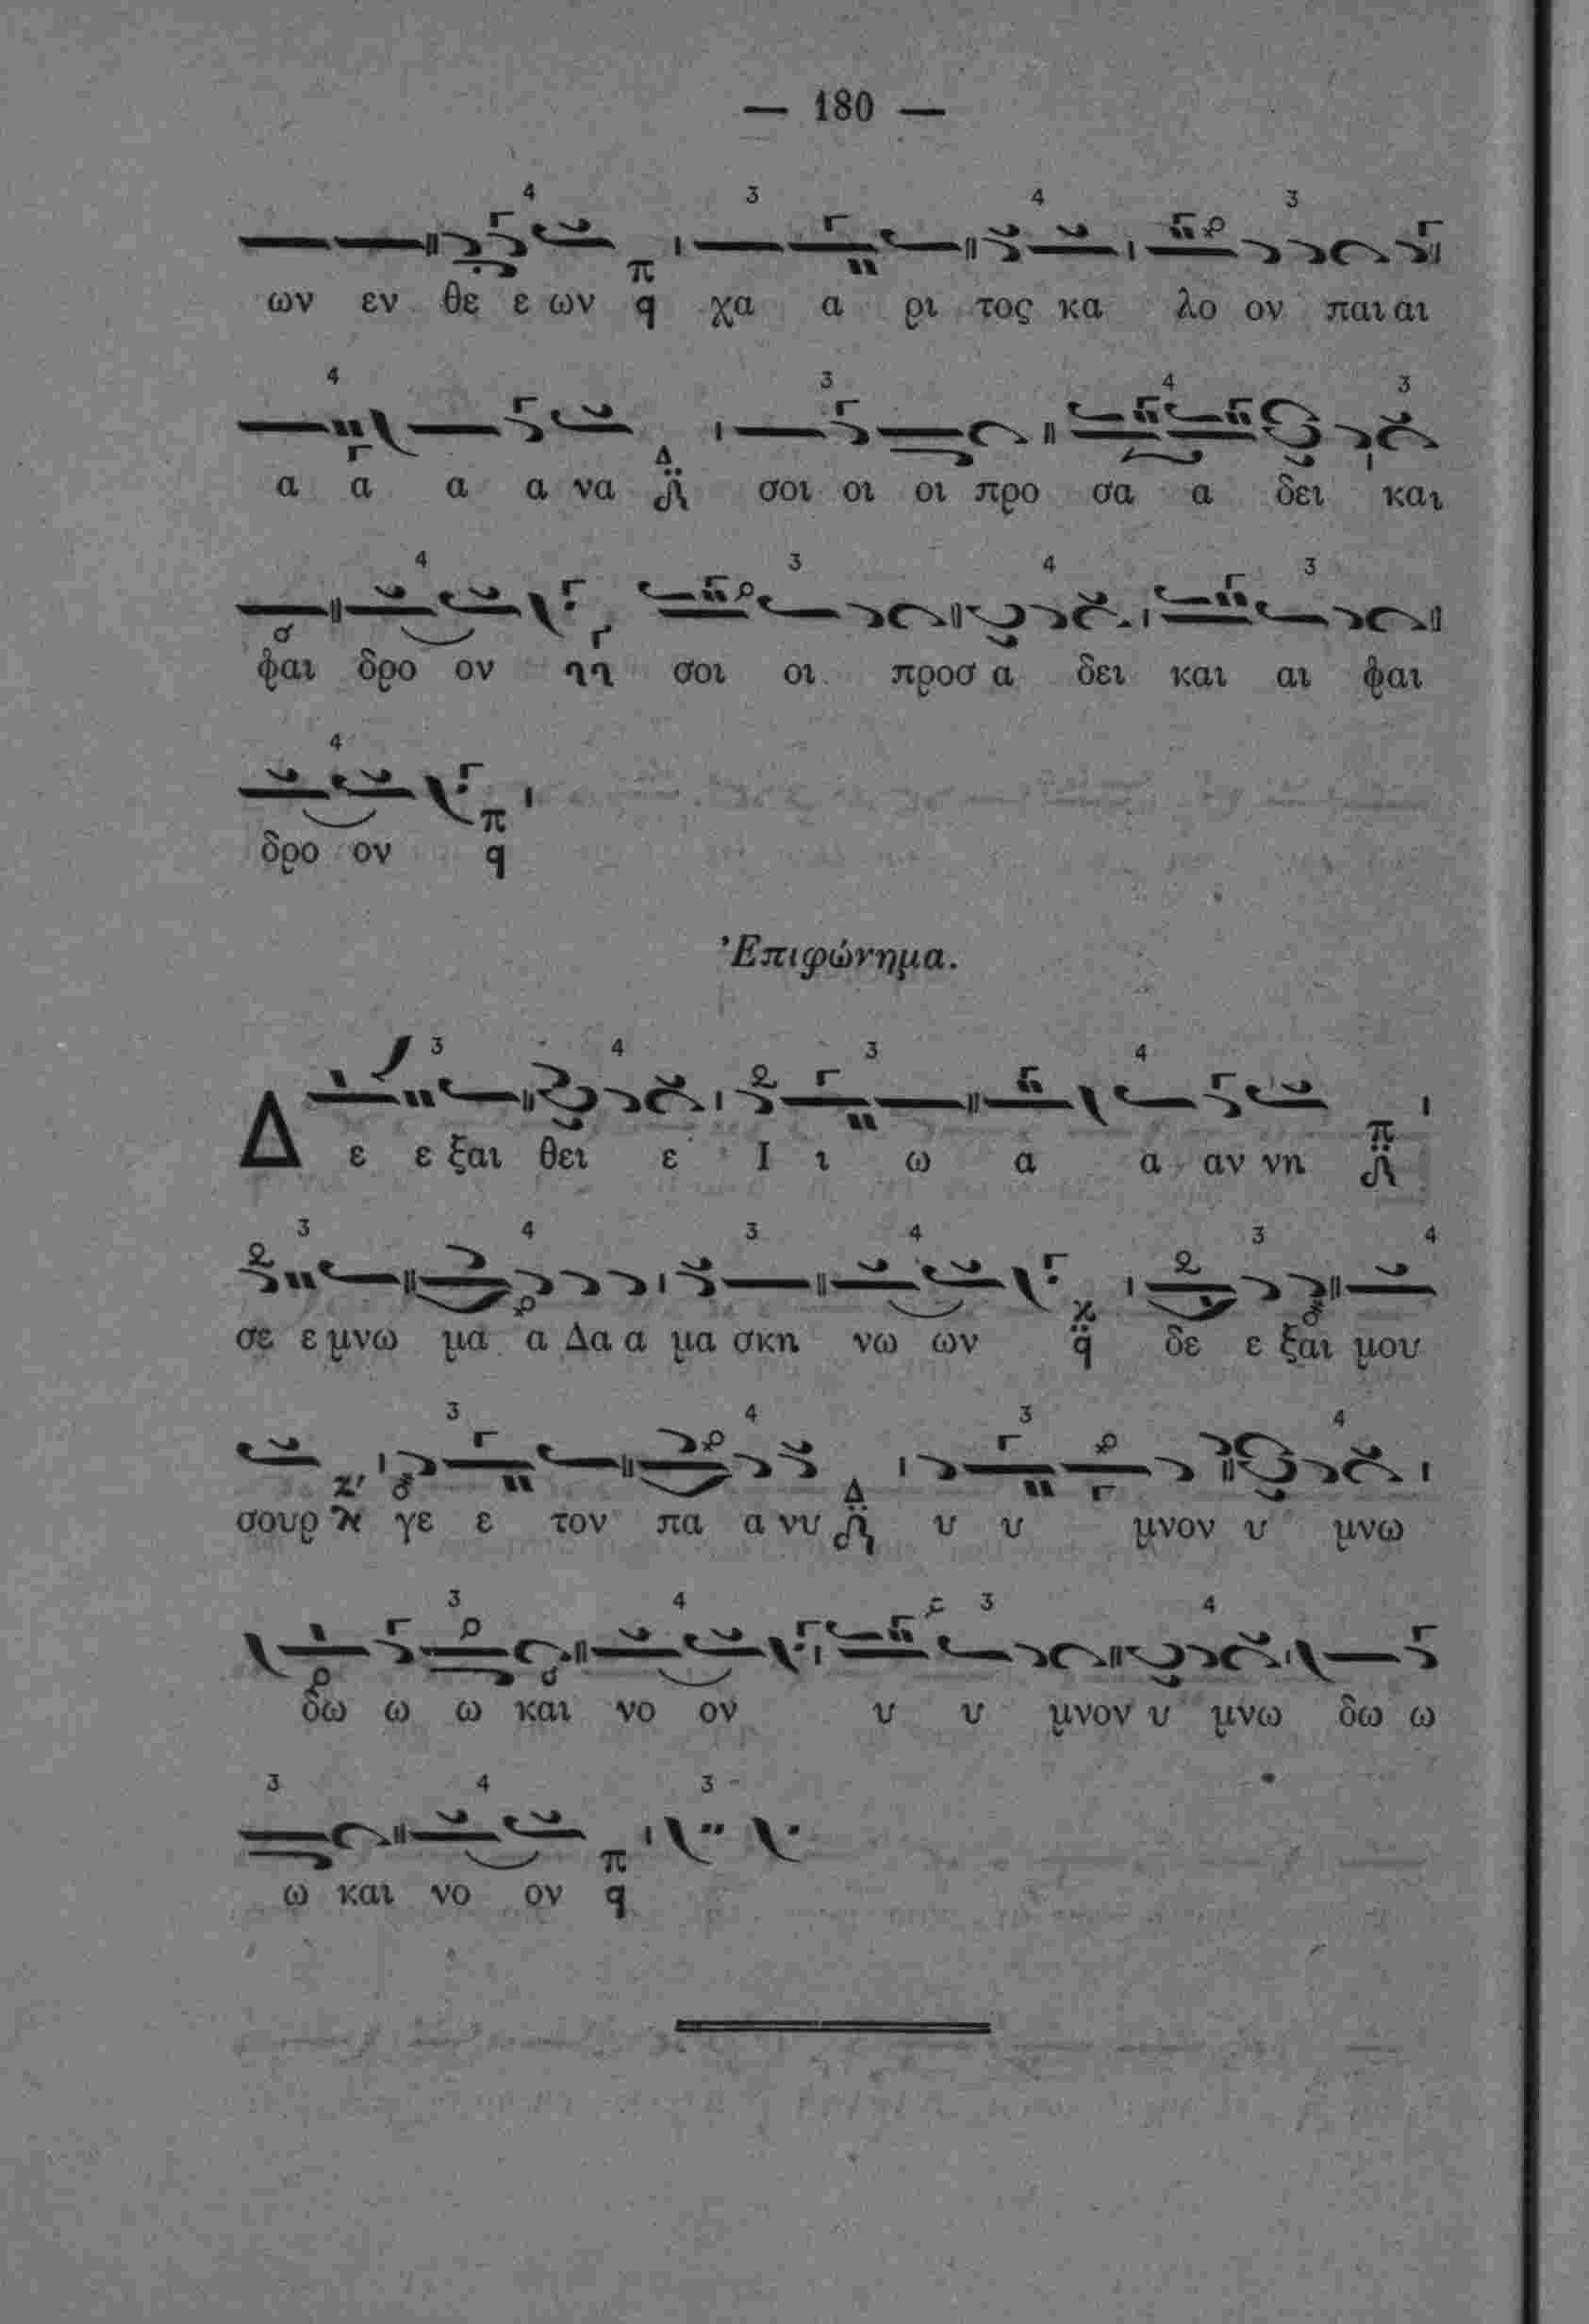 — 180 —
ων εν θε ε ων χα α ρι τος κα λο ον παι αι
α α α α να σοι οι οι προ σα α δει και
φαι δρο ον σοι οι προσ α δει και αι φαι
δρο ον
Ἐπιφώνημα.
Δ ε ε ξαι θει ε Ι ι ω α α αν νη
σε ε μνω μα α Δα α μα σκη νω ων δε ε ξαι μου
σουρ γε ε τον πα α νυ υ υ μνον υ μνω
δω ω ω και νο ον υ υ μνον υ μνω δω ω
ω και νο ον